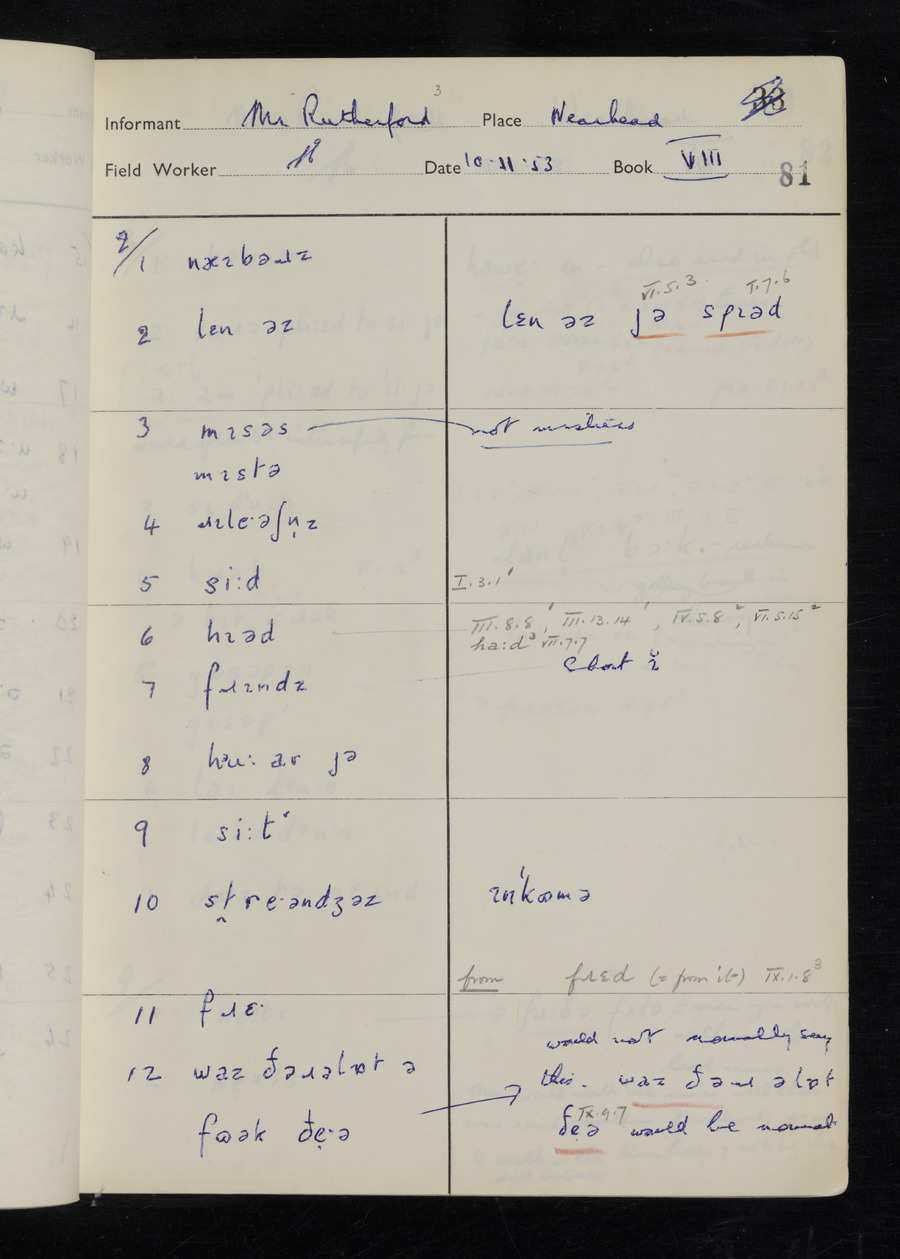 3
Informant Mr Rutherford Place Wearhead 33
Field Worker Date 10·11·53 Book VIII
81
2/
1 næɪbəɹz
2 lɛn əz lɛn əz jə spɪəd
VI.5.3 I.7.6
3 mɪsəs not mistress
mɪstə
4 ɹɪle·əʃn̩z
5 si:d I.3.1'
6 hɪəd III.8.8', III.13.14', IV.5.8², VI.5.15²
ha:d³ VII.7.7
7 fɹɪndz Short ɪ̆
8 hʉ: ar jə
9 si:t
10 stre·əndʒəz ɪn'kɷmə
from fɹɛd (= from it) IX.1.8³
11 fɹɛ·
12 waz ðəɹəlɒt ə would not normally say
this. waz ðəɹ əlɒt
fɷək ðẹ·ə ðẹə IX.9.7 would be normal